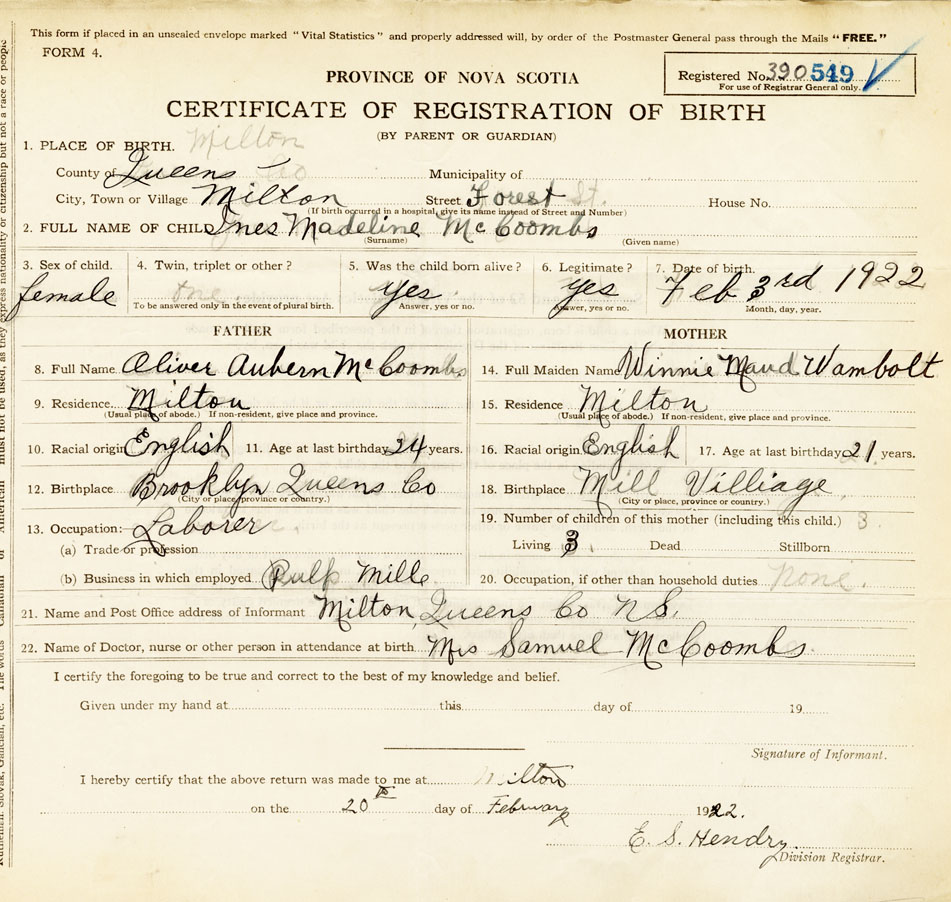 This form if placed in an unsealed envelope marked "Vital Statistics" and properly addressed will, by order of the Postmaster General pass through the Mails "FREE."
FORM 4.
PROVINCE OF NOVA SCOTIA
Registered No. 390549
For use of Registrar General only.
CERTIFICATE OF REGISTRATION OF BIRTH
(BY PARENT OR GUARDIAN)
1. PLACE OF BIRTH. Milton
County of Queens Co Municipality of
City, Town or Village Milton Street Forest St. House No.
(If birth occurred in a hospital, give its name instead of Street and Number)
2. FULL NAME OF CHILD Ines Madeline McCoombs
(Surname) (Given name)
3. Sex of child. 4. Twin, triplet or other? 5. Was the child born alive? 6. Legitimate? 7. Date of birth.
female one Yes yes Feb 3rd 1922
To be answered only in the event of plural birth. Answer, yes or no. Answer, yes or no. Month, day, year.
FATHER MOTHER
8. Full Name Oliver Aubern McCoombs 14. Full Maiden Name Winnie Maud Wambolt
9. Residence. Milton 15. Residence Milton
(Usual place of abode.) If non-resident, give place and province. (Usual place of abode.) If non-resident, give place and province.
10. Racial origin English 11. Age at last birthday 24 years. 16. Racial origin English 17. Age at last birthday 21 years.
12. Birthplace Brooklyn Queens Co 18. Birthplace Mill Villiage
(City or place, province or country.) (City or place, province or country.)
13. Occupation: Laborer 19. Number of children of this mother (including this child.) 3
(a) Trade or profession Living 3 Dead Stillborn
(b) Business in which employed Pulp Mill 20. Occupation, if other than household duties None.
21. Name and Post Office address of Informant Milton, Queens Co N.S.
22. Name of Doctor, nurse or other person in attendance at birth. Mrs Samuel McCoombs
I certify the foregoing to be true and correct to the best of my knowledge and belief.
Given under my hand at this day of 19
Signature of Informant.
I hereby certify that the above return was made to me at Milton
on the 20th day of February 1922.
E. S. Hendry
Division Registrar.